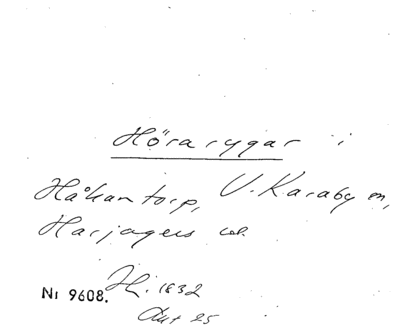 Hörarygar i
Håkantorp, V. Karaby sn,
Harjagers hd.
Nr 9608. H. 1832
Aut 25